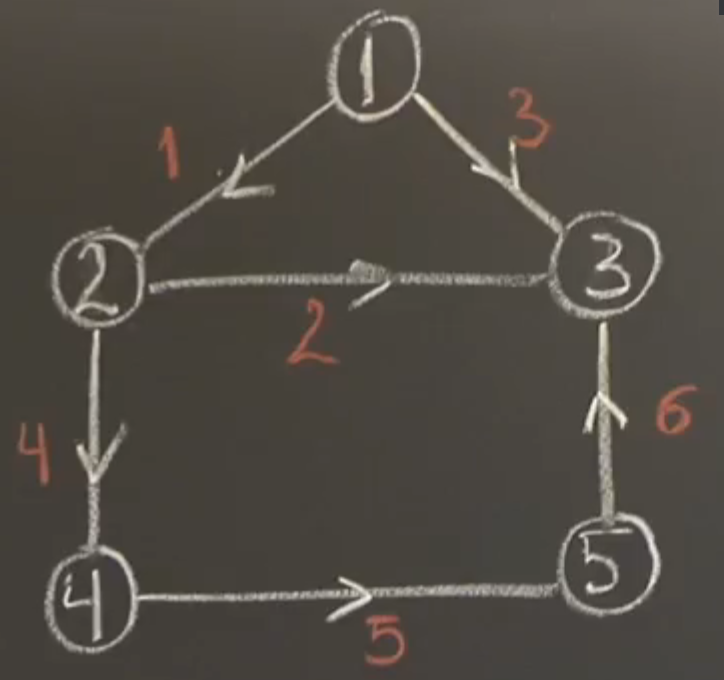 1
1
3
2
3
2
4
6
4
5
5